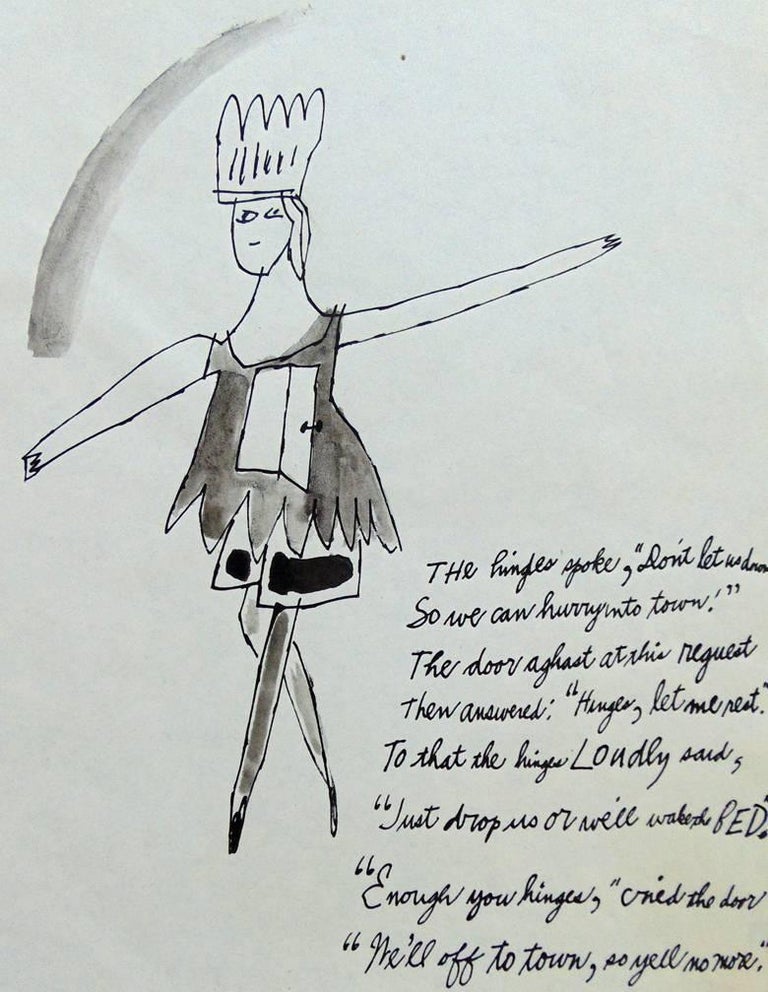 THE hinges spoke, "Don't let us down
So we can hurry into town!"
The door aghast at this request
Then answered: "Hinges, let me rest."
To that the hinges LOUdly said,
"Just drop us or we'll wake the BED."
"Enough you hinges," cried the door
"We'll off to town, so yell no more."